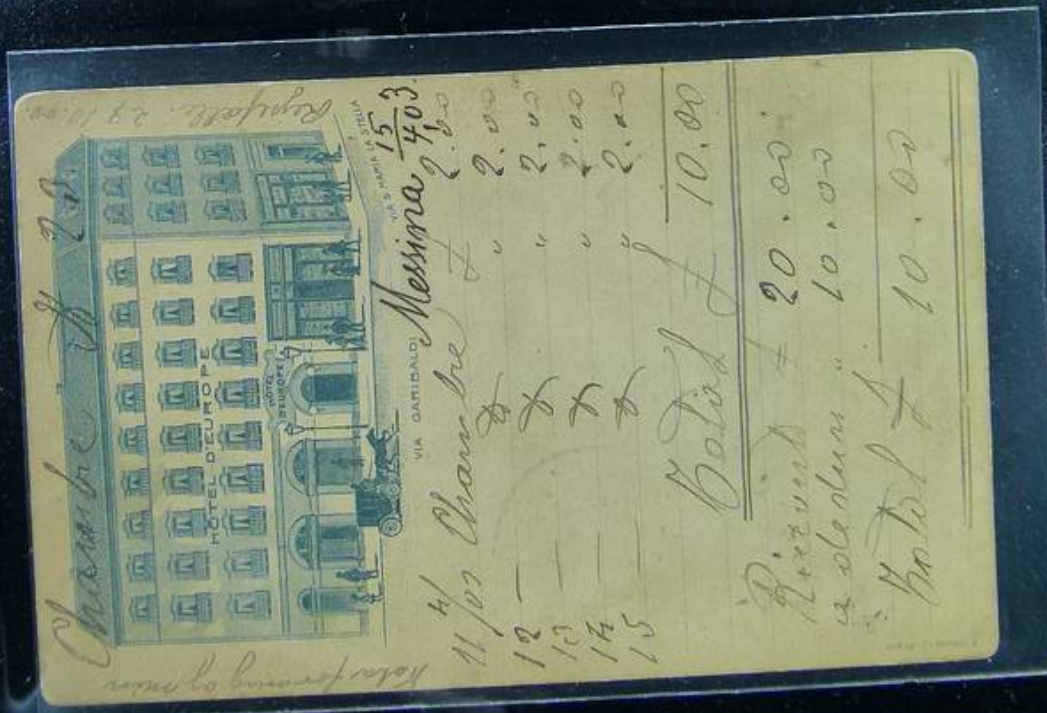 Chambre № 23.
HÔTEL D'EUROPE
HÔTEL D'EUROPE
VIA GARIBALDI
VIA S. MARIA LA STELLA
Messina 15/4 03.
11/4 03 Chambre £ 2.00
12 — " 2.00
13 — " 2.00
14 — " 2.00
15 " 2.00
Total £ 10.00
£ 20.00
" 10.00
Total £ 10.00